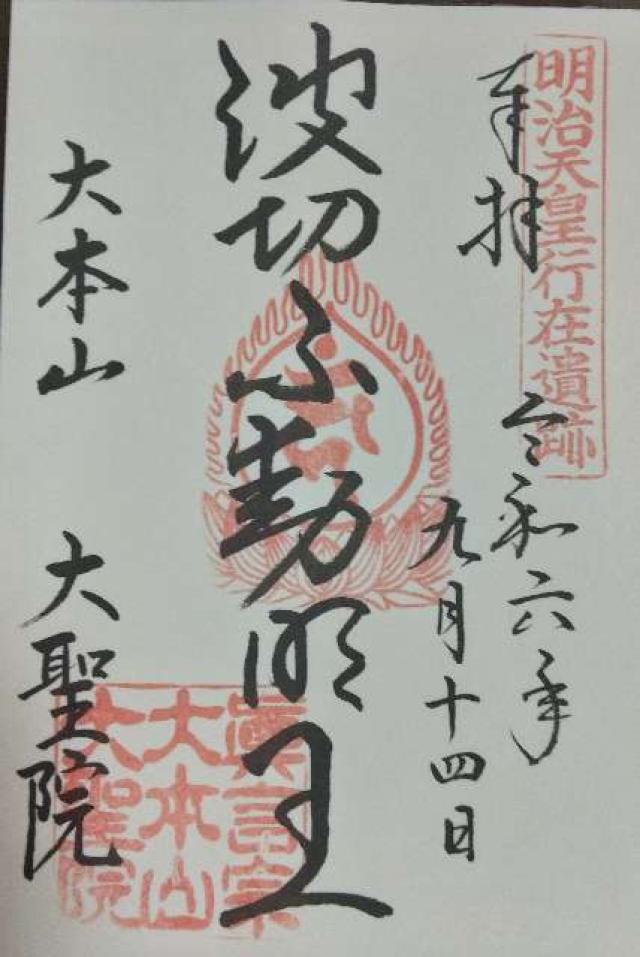 明治天皇行在遺跡
奉拝
令和六年
九月十四日
波切不動明王
大本山 大聖院
眞言宗
大本山
大聖院